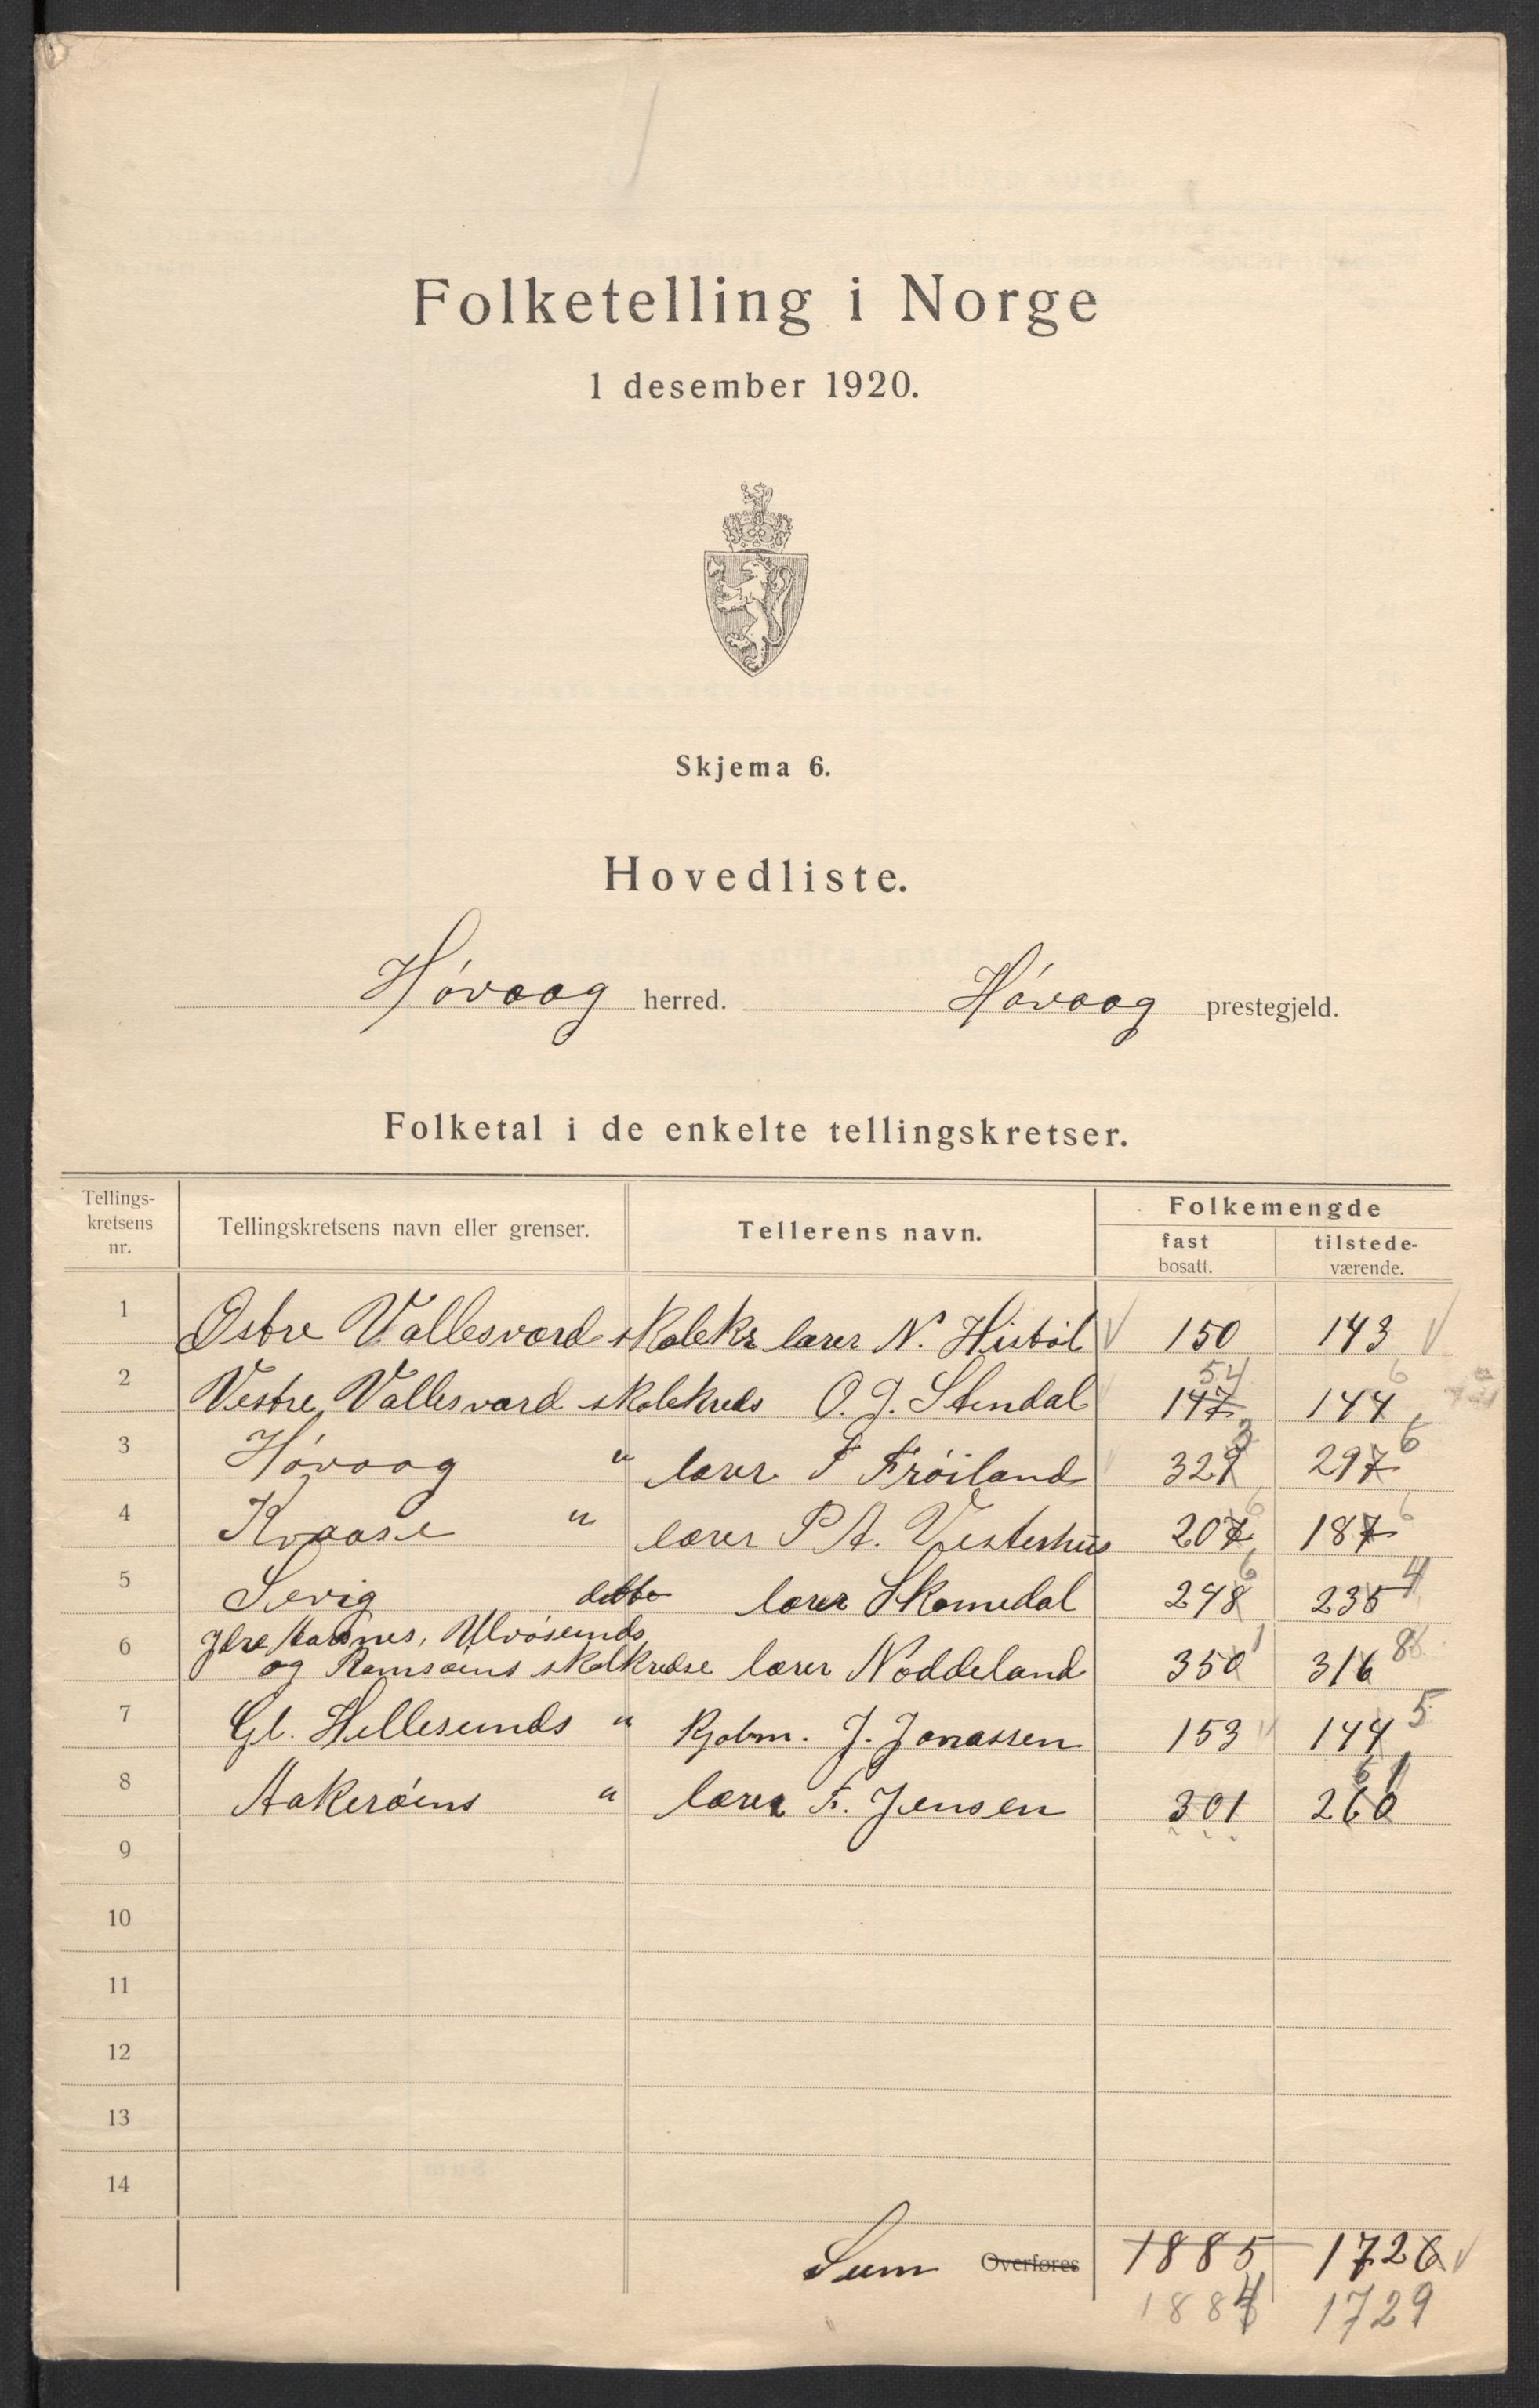 Folketelling i Norge
1 desember 1920.
Skjema 6.
Hovedliste.
Høvaag herred. Høvaag prestegjeld.
Folketal i de enkelte tellingskretser.
Tellings-
kretsens
nr.
Tellingskretsens navn eller grenser.
Tellerens navn.
Folkemengde
fast
bosatt.
tilstede-
værende.
1 Østre Vallesværd skolekr lærer N. Histøl 150 143
54 6
2 Vestre Vallesværd skolekreds O. J. Stendal 147 144
3 6
3 Høvaag " lærer F Frøiland 329 297
6 6
4 Kvaase " lærer P A. Vesterhus 207 187
6 4
5 Sevig detto lærer Skomedal 248 235
6 Ydre Aasnes, Ulvøsunds
og Ramsøens skolkredse lærer Noddeland 350 1 316 8
7 Gl. Hellesunds " Kjøbm. J. Jonassen 153 144 5
61
8 Aakerøens " lærer F. Jensen 301 260
9
10
11
12
13
14
Sum Overføres 1885 1726
1884 1729